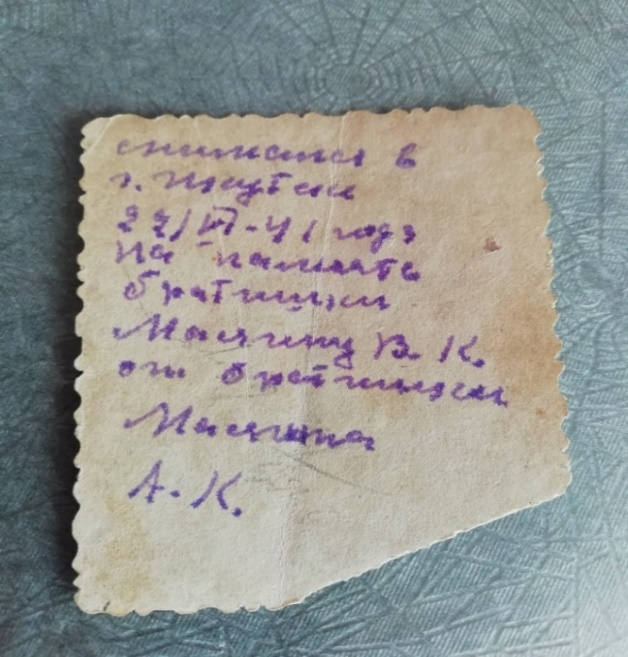 снимался в
г. Якутске
27/VI-41 года
На память
братишки
Малягину В. К.
от братишки
Малягина
А. К.